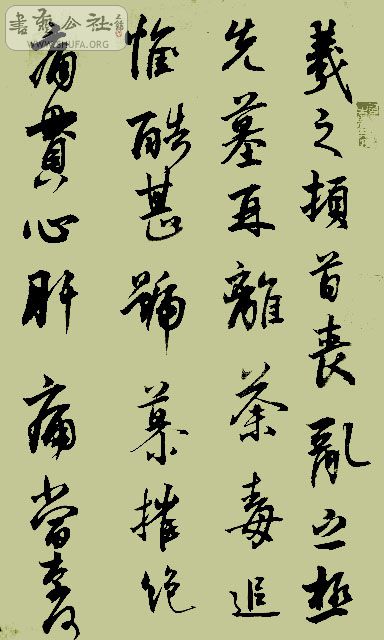 羲之頓首喪亂之極
先墓再離荼毒追
惟酷甚號慕摧絶
痛貫心肝痛當奈何
書法公社
WWW.SHUFA.ORG